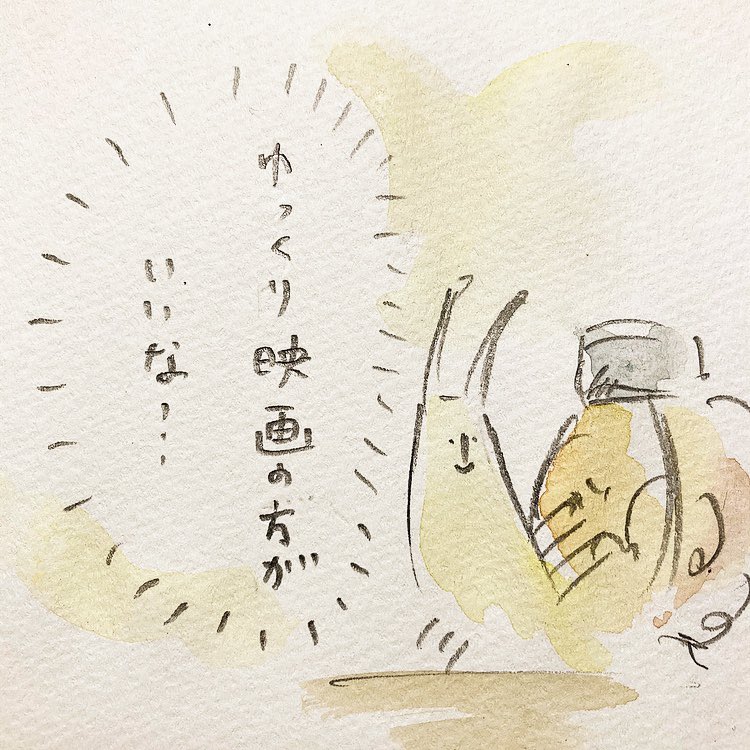 ゆっくり映画の方が
いいな…